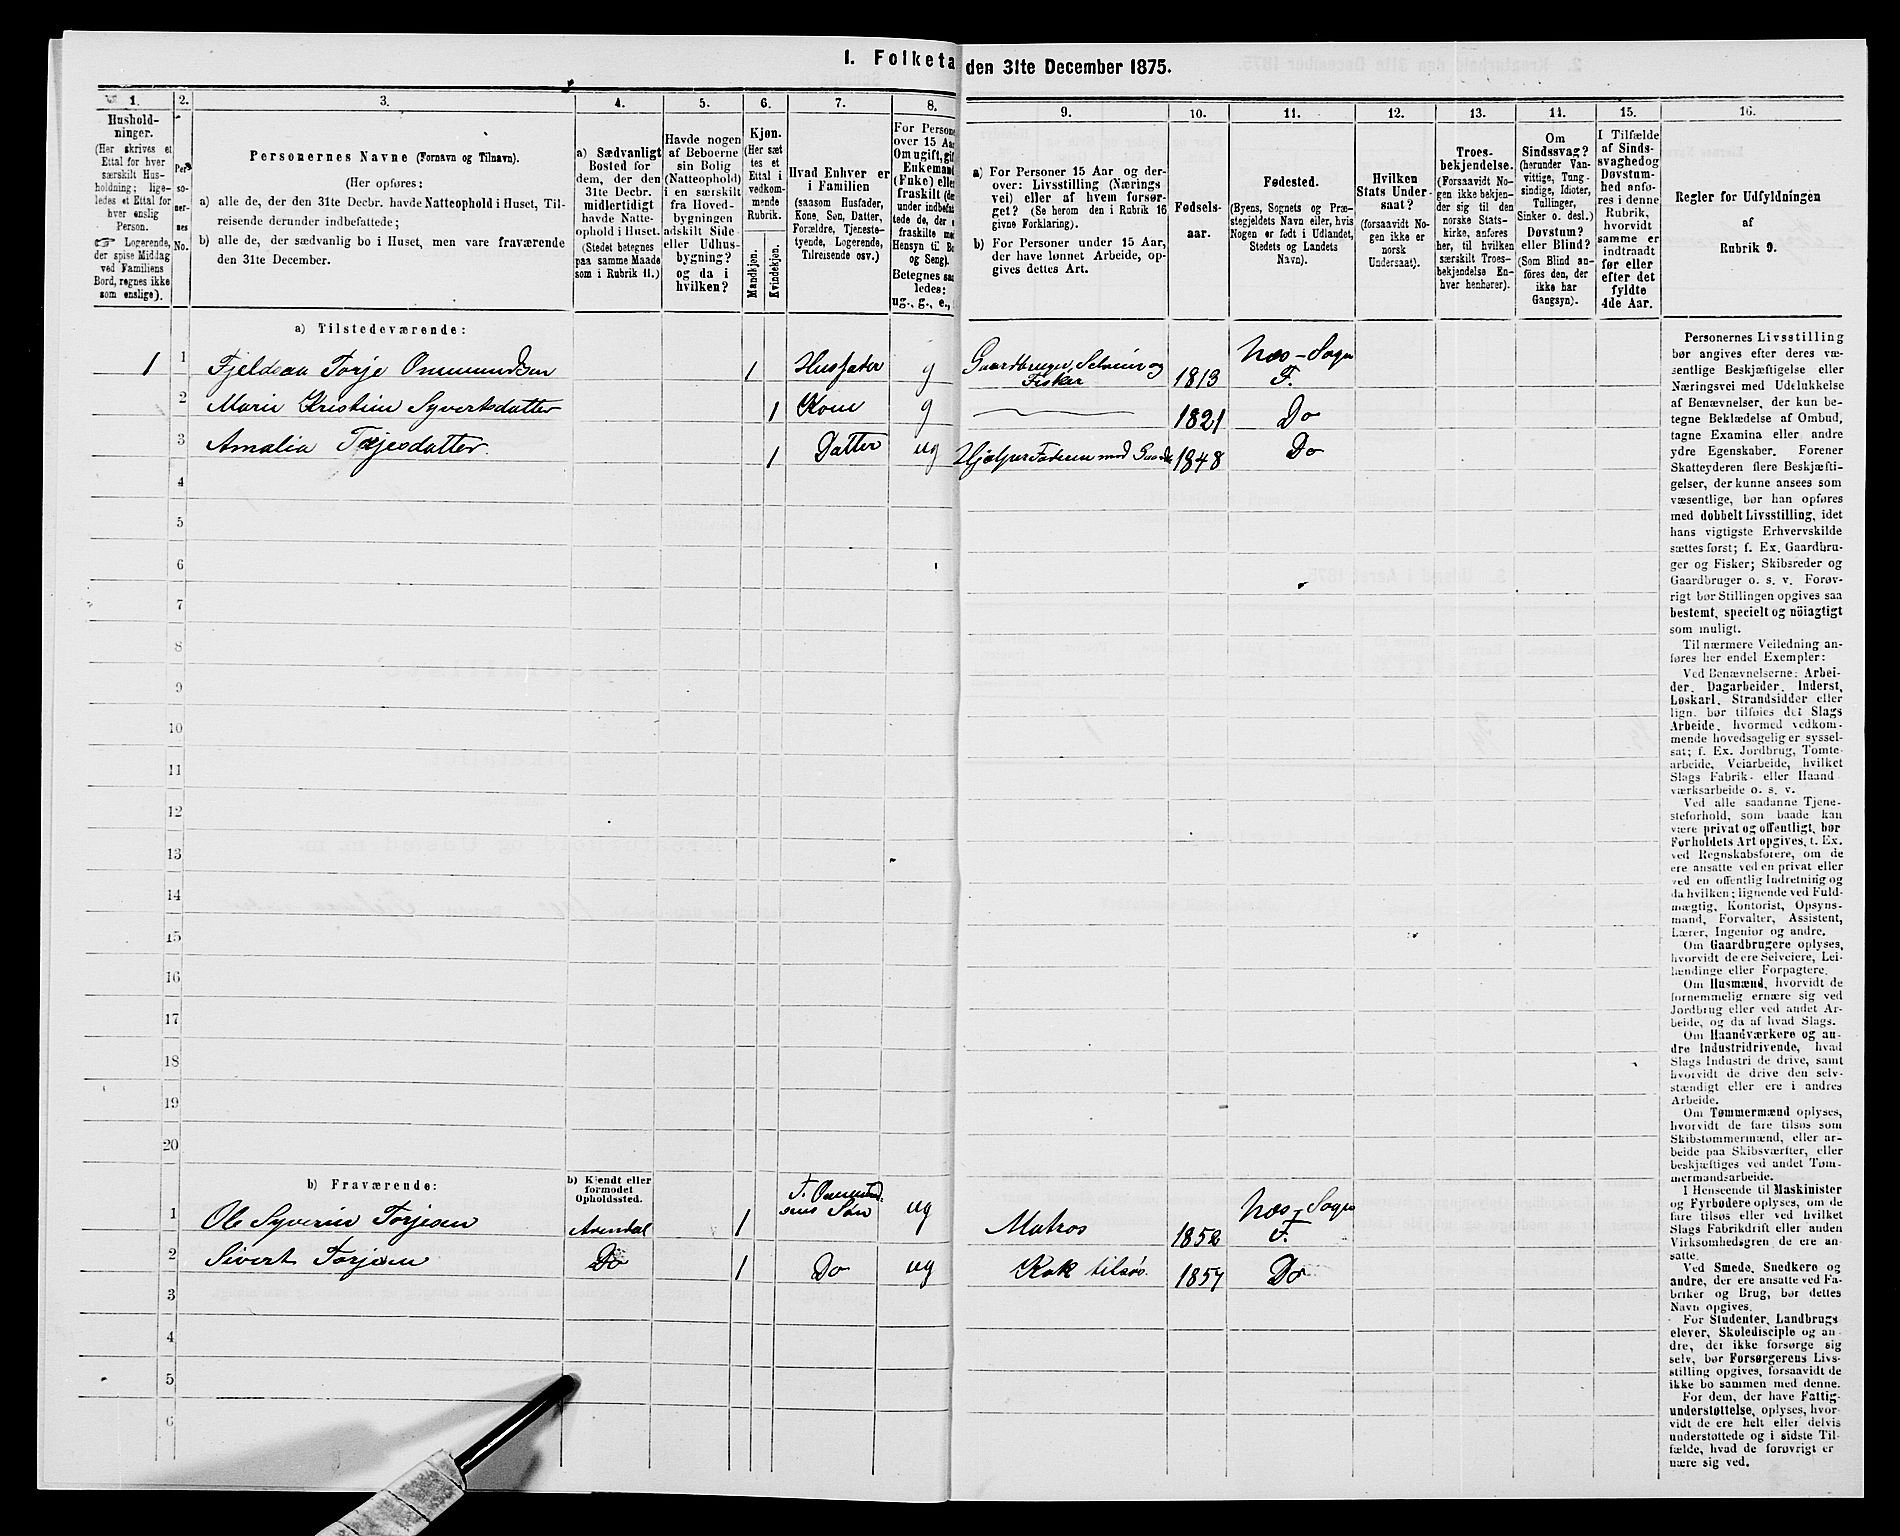 I. Folketa den 31te December 1875.
1.
2.
3.
4.
5.
6.
7.
8.
9.
10.
11.
12.
13.
14.
15.
16.
Hushold-
ninger.
(Her skrives et
Ettal for hver
særskilt Hus-
holdning; lige-
ledes et Ettal for
hver enslig
Person.
☞ Logerende,
der spise Middag
ved Familiens
Bord, regnes ikke
som enslige).
Per-
so-
ner-
nes
No.
Personernes Navne (Fornavn og Tilnavn).
(Her opføres:
a) alle de, der den 31te Decbr. havde Natteophold i Huset, Til-
reisende derunder indbefattede;
b) alle de, der sædvanlig bo i Huset, men vare fraværende
den 31te December.
a) Sædvanligt
Bosted for
dem, der den
31te Decbr.
midlertidigt
havde Natte-
ophold i Huset.
(Stedet betegnes
paa samme Maade
som i Rubrik 11.)
Havde nogen
af Beboerne
sin Bolig
(Natteophold)
i en særskilt
fra Hoved-
bygningen
adskilt Side-
eller Udhus-
bygning?
og da i
hvilken?
Kjøn.
(Her sæt-
tes et
Ettal i
vedkom-
mende
Rubrik.
Mandkjøn.
Kvindekjøn.
Hvad Enhver er
i Familien
(saasom Husfader,
Kone, Søn, Datter,
Forældre, Tjeneste-
tyende, Logerende,
Tilreisende osv.)
For Persone
over 15 Aa
Om ugift, gif
Enkemand
(Fuke) elle
fraskilt (de
under indbefat
tede de, der
fraskilte me
Hensyn til Bo
og Seng).
Betegnes saa
ledes:
ug., g., e.,
a) For Personer 15 Aar og der-
over: Livsstilling (Nærings
vei) eller af hvem forsør-
get? (Se herom den i Rubrik 16
givne Forklaring).
b) For Personer under 15 Aar,
der have lønnet Arbeide, op-
gives dettes Art.
Fødsels-
aar.
Fødested.
(Byens, Sognets og Præ-
stegjeldets Navn eller, hvis
Nogen er født i Udlandet,
Stedets og Landets
Navn).
Hvilken
Stats Under-
saat?
(forsaavidt No-
gen ikke er
norsk
Undersaat).
Troes-
bekjendelse.
(Forsaavidt No-
gen ikke bekjen-
der sig til den
norske Stats-
kirke, anføres
her, til hvilken
særskilt Troes-
bekjendelse En-
hver henhører).
Om
Sindssvag?
(herunder Van-
vittige, Tung-
sindige, Idioter,
Tullinger,
Sinker o. desl.)
Døvstum?
eller Blind?
(Som Blind an-
føres den, der
ikke har
Gangsyn).
I Tilfælde
af Sinds-
svaghed og
Døvstum-
hed anfø-
res i denne
Rubrik,
hvorvidt
samme er
indtraadt
før eller
efter det
fyldte
4de Aar.
Regler for Udfyldningen
af
Rubrik 9.
a) Tilstedeværende:
1 1 Fjeldsaa Torje Ommundsen 1 Husfader g Gaardbruger, Selveier og Fisker 1813 Næs-Sogn F.
2 Marie Kristine Syvertsdatter 1 Kone g 1821 Do
3 Amalia Torjesdatter 1 Datter ug Hjelper Faderen med 1848 Do
4
5
6
7
8
9
10
11
12
13
14
15
16
17
18
19
20
b) Fraværende:
b) Kjendt eller
formodet
Opholdssted.
1 Ole Syverin Torjesen Arendal 1 T. Ommunds Søn ug Matros 1852 Næs-Sogn F.
2 Sivert Torjesen Do 1 Do ug Kok tilsøs. 1857 Do
3
4
5
6
Personernes Livsstilling
bør angives efter deres væ-
sentlige Beskjæftigelse eller
Næringsvei med Udelukkelse
af Benævnelser, der kun be-
tegne Beklædelse af Ombud,
tagne Examina eller andre
ydre Egenskaber. Forener
Skatteyderen flere Beskjæfti-
gelser, der kunne ansees som
væsentlige, bør han opføres
med dobbelt Livsstilling, idet
hans vigtigste Erhvervskilde
sættes først; f. Ex. Gaardbru-
ger og Fisker; Skibsreder og
Gaardbruger o. s. v. Forøv-
rigt bør Stillingen opgives saa
bestemt, specielt og nöiagtigt
som muligt.
Til nærmere Veiledning an-
føres her endel Exempler:
Ved Benævnelserne: Arbei-
der, Dagarbeider, Inderst,
Løskarl, Strandsidder eller
lign. bør tilføies det Slags
Arbeide, hvormed vedkom-
mende hovedsagelig er syssel-
sat; f. Ex. Jordbrug, Tomte-
arbeide, Veiarbeide, hvilket
Slags Fabrik- eller Haand
værksarbeide o. s. v.
Ved alle saadanne Tjene-
steforhold, som baade kan
være privat og offentligt, bør
Forholdets Art opgives, f. Ex.
ved Regnskabsførere, om de
ere ansatte ved en privat eller
ved en offentlig Indretning og
da hvilken; lignende ved Fuld-
mægtig, Kontorist, Opsyns-
mand, Forvalter, Assistent,
Lærer, Ingeniør og andre.
Om Gaardbrugere oplyses,
hvorvidt de ere Selveiere, Lei-
lændinge eller Forpagtere.
Om Husmænd, hvorvidt de
fornemmelig ernære sig ved
Jordbrug eller ved andet Ar-
beide, og da af hvad Slags.
Om Haandværkere og an-
dre Industridrivende, hvad
Slags Industri de drive, samt
hvorvidt de drive den selv-
stændigt eller ere i andres
Arbeide.
Om Tømmermænd oplyses,
hvorvidt de fare tilsøs som
Skibstømmermænd, eller ar-
beide paa Skibsværfter, eller
beskjæftiges ved andet Tøm-
mermandsarbeide.
I Henseende til Maskinister
og Fyrbødere oplyses, om de
fare tilsøs eller ved hvilket
Slags Fabrikdrift eller anden
Virksomhedsgren de ere an-
satte.
Ved Smede, Snedkere og
andre, der ere ansatte ved Fa-
briker og Brug, bør dettes
Navn opgives.
For Studenter, Landbrugs
elever, Skoledisciple og an-
dre, der ikke forsørge sig
selv, bør Forsørgerens Livs-
stilling opgives, forsaavidt de
ikke bo sammen med denne.
For dem, der have Fattig-
understøttelse, oplyses, hvor-
vidt de ere helt eller delvis
understøttede og i sidste Til-
fælde, hvad de forøvrigt er
nære sig ved.